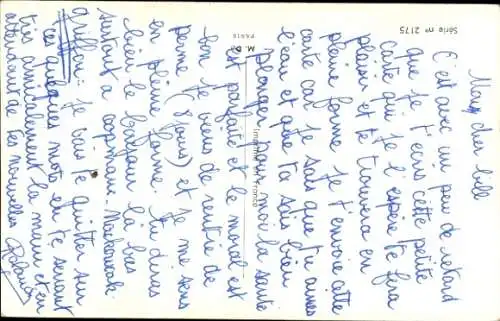 Série n° 2175
M. D.
PARIS
Imprimé en France
Mon cher
C'est avec un peu de retard
que je t'ecris cette petite
carte qui je l'espère te fera
plaisir et te trouvera en
pleine forme. Je t'envoie cette
carte car je sais que tu aimes
l'eau et que tu sais bien
plonger. Pour moi la santé
est parfaite et le moral est
bon je viens de sortir de
perme (8 jours) et je me sens
en pleine forme. Tu diras
bien le bonjour là bas
surtout à
Griffon. Je vais te quitter sur
ces quelques mots en te serrant
très amicalement la main et en
attendant de tes nouvelles
Roland